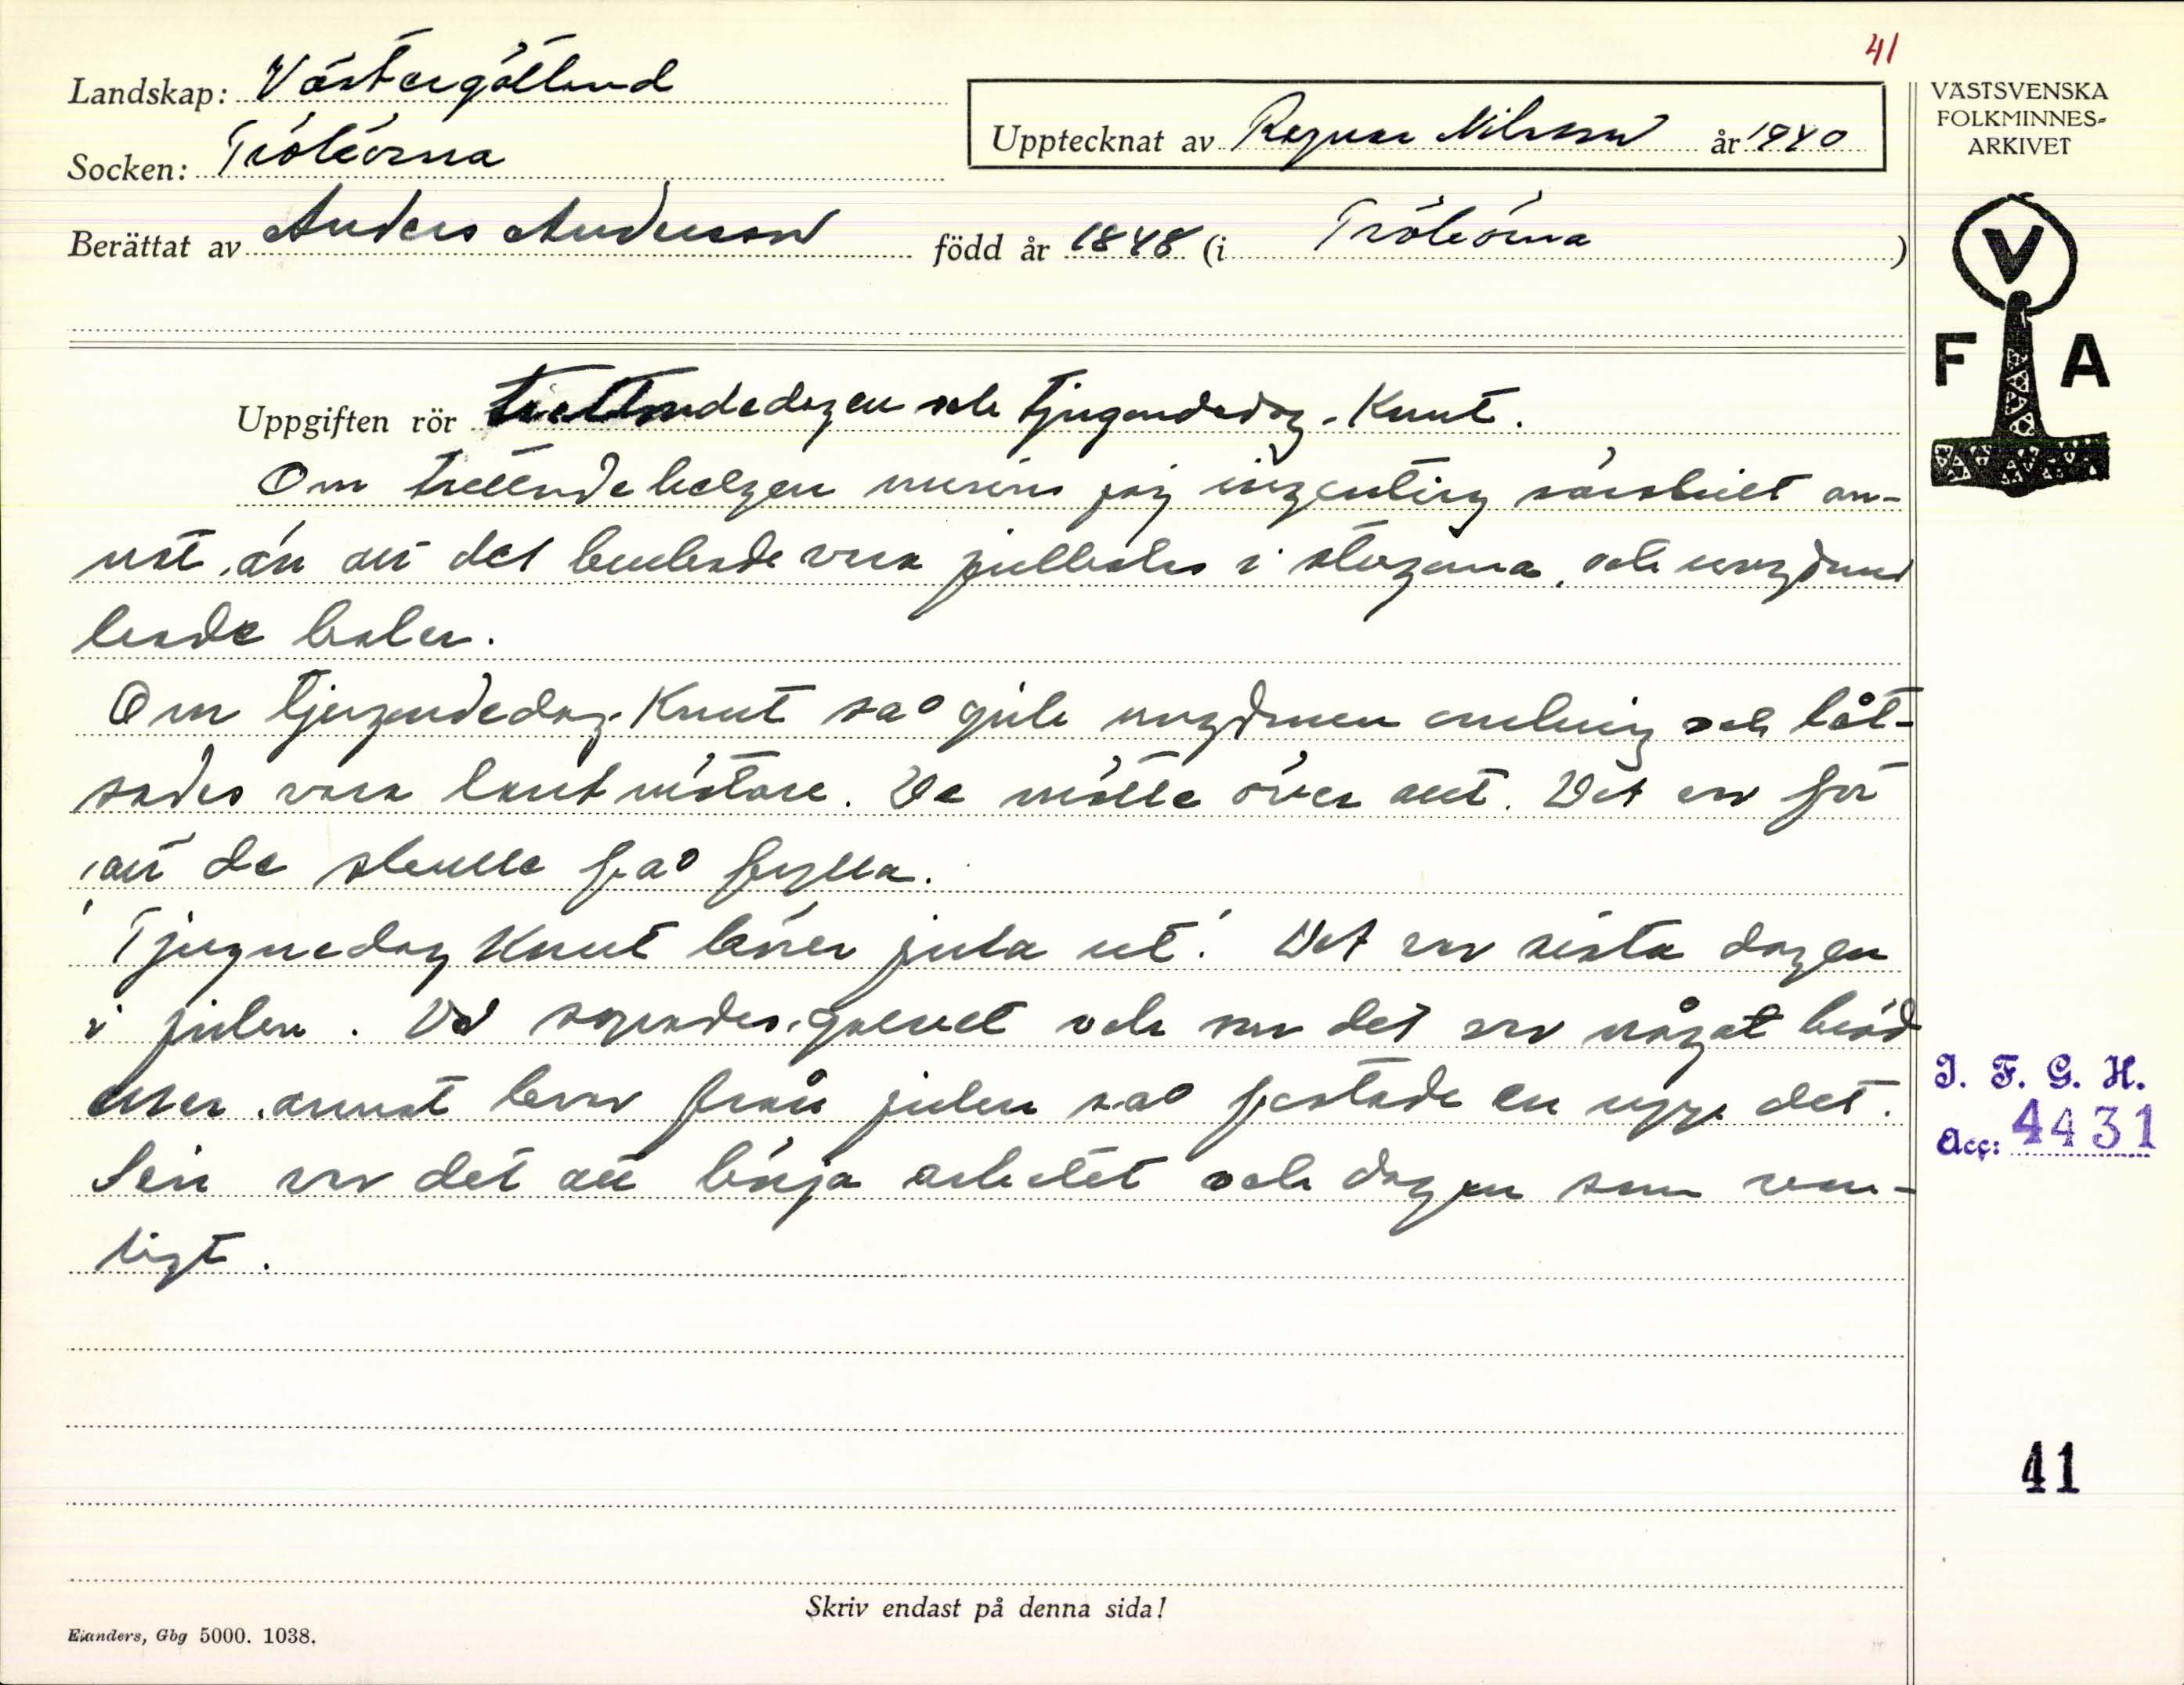 41
Landskap: Västergötland
Socken: Trökörna
Upptecknat av Ragnar Nilsson år 1940
Berättat av Anders Andersson född år 1848 (i Trökörna)
VÄSTSVENSKA
FOLKMINNES-
ARKIVET
V
F A
Uppgiften rör trettondedagen och tjugondedag-Knut.
Om trettendehelgen minns jag ingenting särskilt an-
nat, än att det brukade vara julkalas i stugorna, och ungdomen
hade baler.
Om tjugondedag-Knut så gick ungdomen omkring och låt-
sades vara lantmätare. De mätte över allt. Det var för
att de skulle få fylla.
"Tjugnedag Knut körer jula ut." Det var sista dagen
i julen. Då sopades golvet och var det var något bröd
eller annat kvar från julen så festade en upp det.
Sen var det att börja arbetet och dagen som van-
ligt.
I. F. G. H.
Acc: 4431
41
Skriv endast på denna sida!
Elanders, Gbg 5000. 1038.